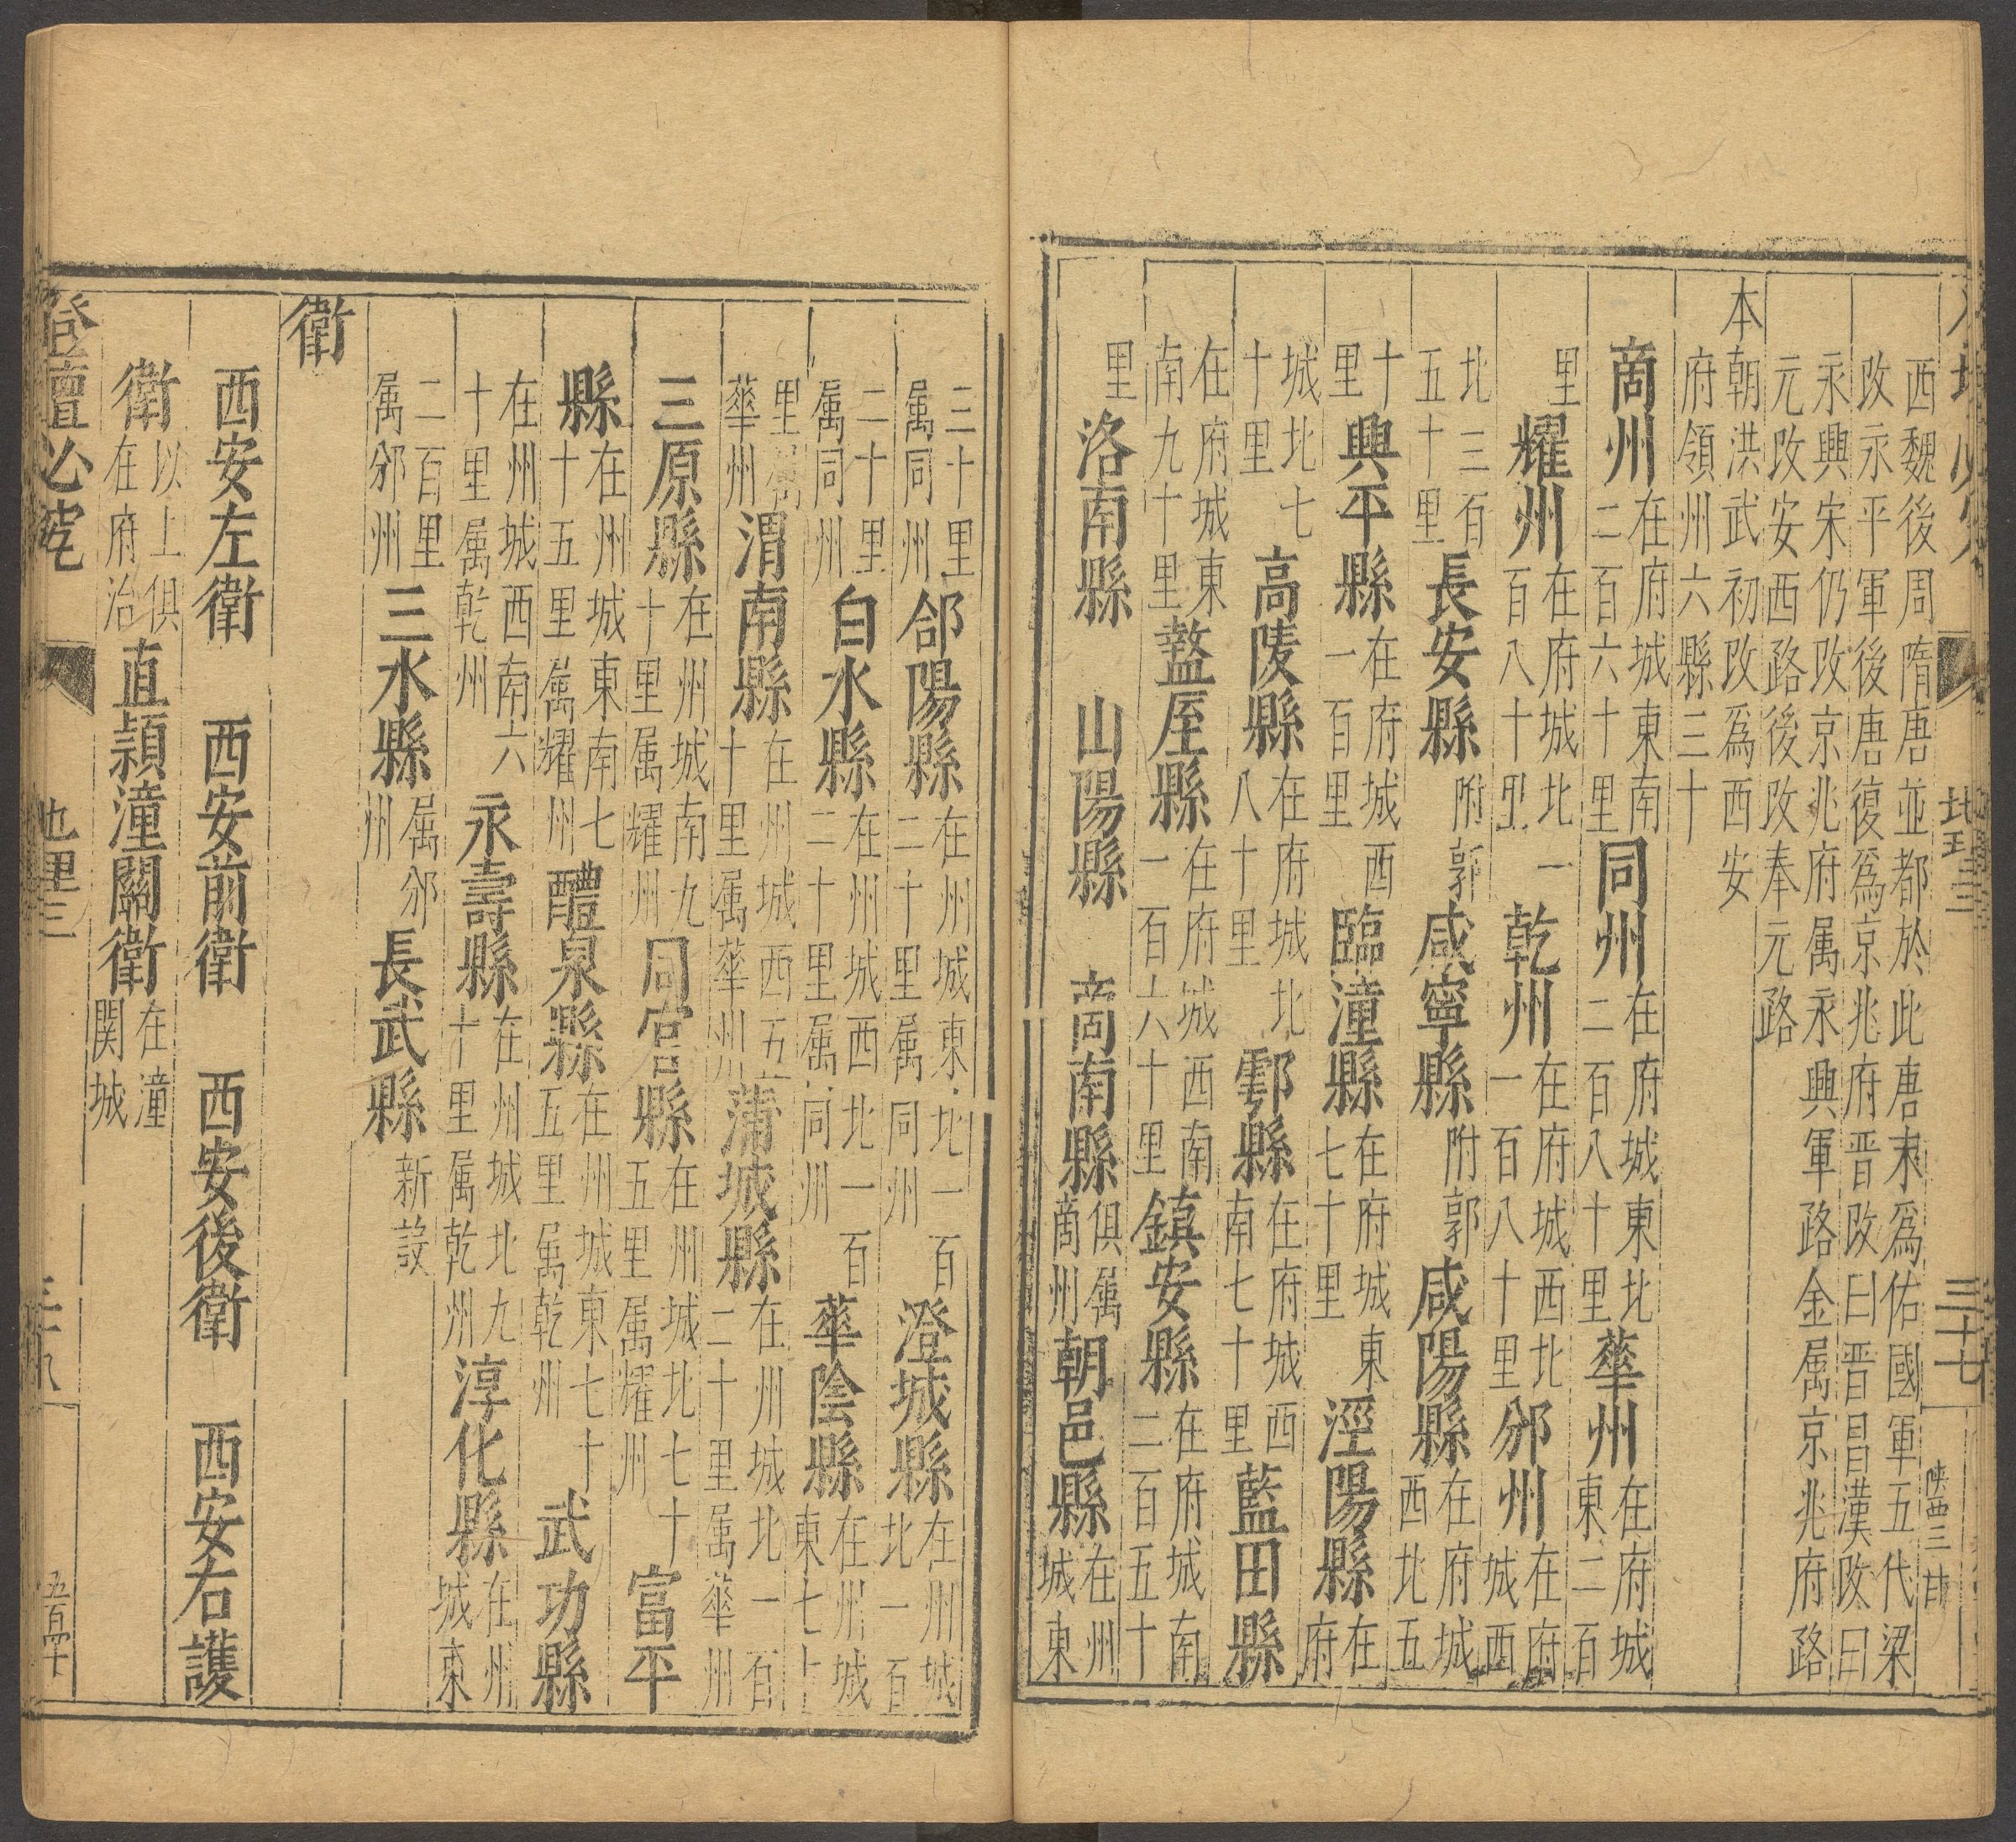 地理三
三十七
陝西三 甘
西魏後周隋唐並都於此唐末爲佑國軍五代梁
改永平軍後唐復爲京兆府晋改曰晋昌漢改曰
永興宋仍改京兆府属永興軍路金属京兆府路
元改安西路後改奉元路
本朝洪武初改爲西安
府領州六縣三十
商州在府城東南二百六十里同州在府城東北二百八十里華州在府城東二百
里耀州在府城北一百八十里乾州在府城西北一百八十里邠州在府城西
北三百五十里長安縣附郭咸寧縣附郭咸陽縣在府城西北五
十里興平縣在府城西一百里臨潼縣在府城東七十里涇陽縣在府
城北七十里高陵縣在府城北八十里鄠縣在府城西南七十里藍田縣
在府城東南九十里盩厔縣在府城西南一百六十里鎮安縣在府城南二百五十
里洛南縣 山陽縣 商南縣俱属商州朝邑縣在州城東
三十里属同州郃陽縣在州城東北一百二十里属同州澄城縣在州城北一百
二十里属同州白水縣在州城西北一百二十里属同州華陰縣在州城東七十
里属華州渭南縣在州城西五十里属華州蒲城縣在州城北一百二十里属華州
三原縣在州城南九十里属耀州同官縣在州城北七十五里属耀州富平
縣在州城東南七十五里属耀州醴泉縣在州城東七十五里属乾州武功縣
在州城西南六十里属乾州永壽縣在州城北九十里属乾州淳化縣在州城東
二百里属邠州三水縣属邠州長武縣新設
衛
西安左衛 西安前衛 西安後衛 西安右護
衛以上俱在府治直𨽻潼關衛在潼関城
登壇必究
地理三
五百四十